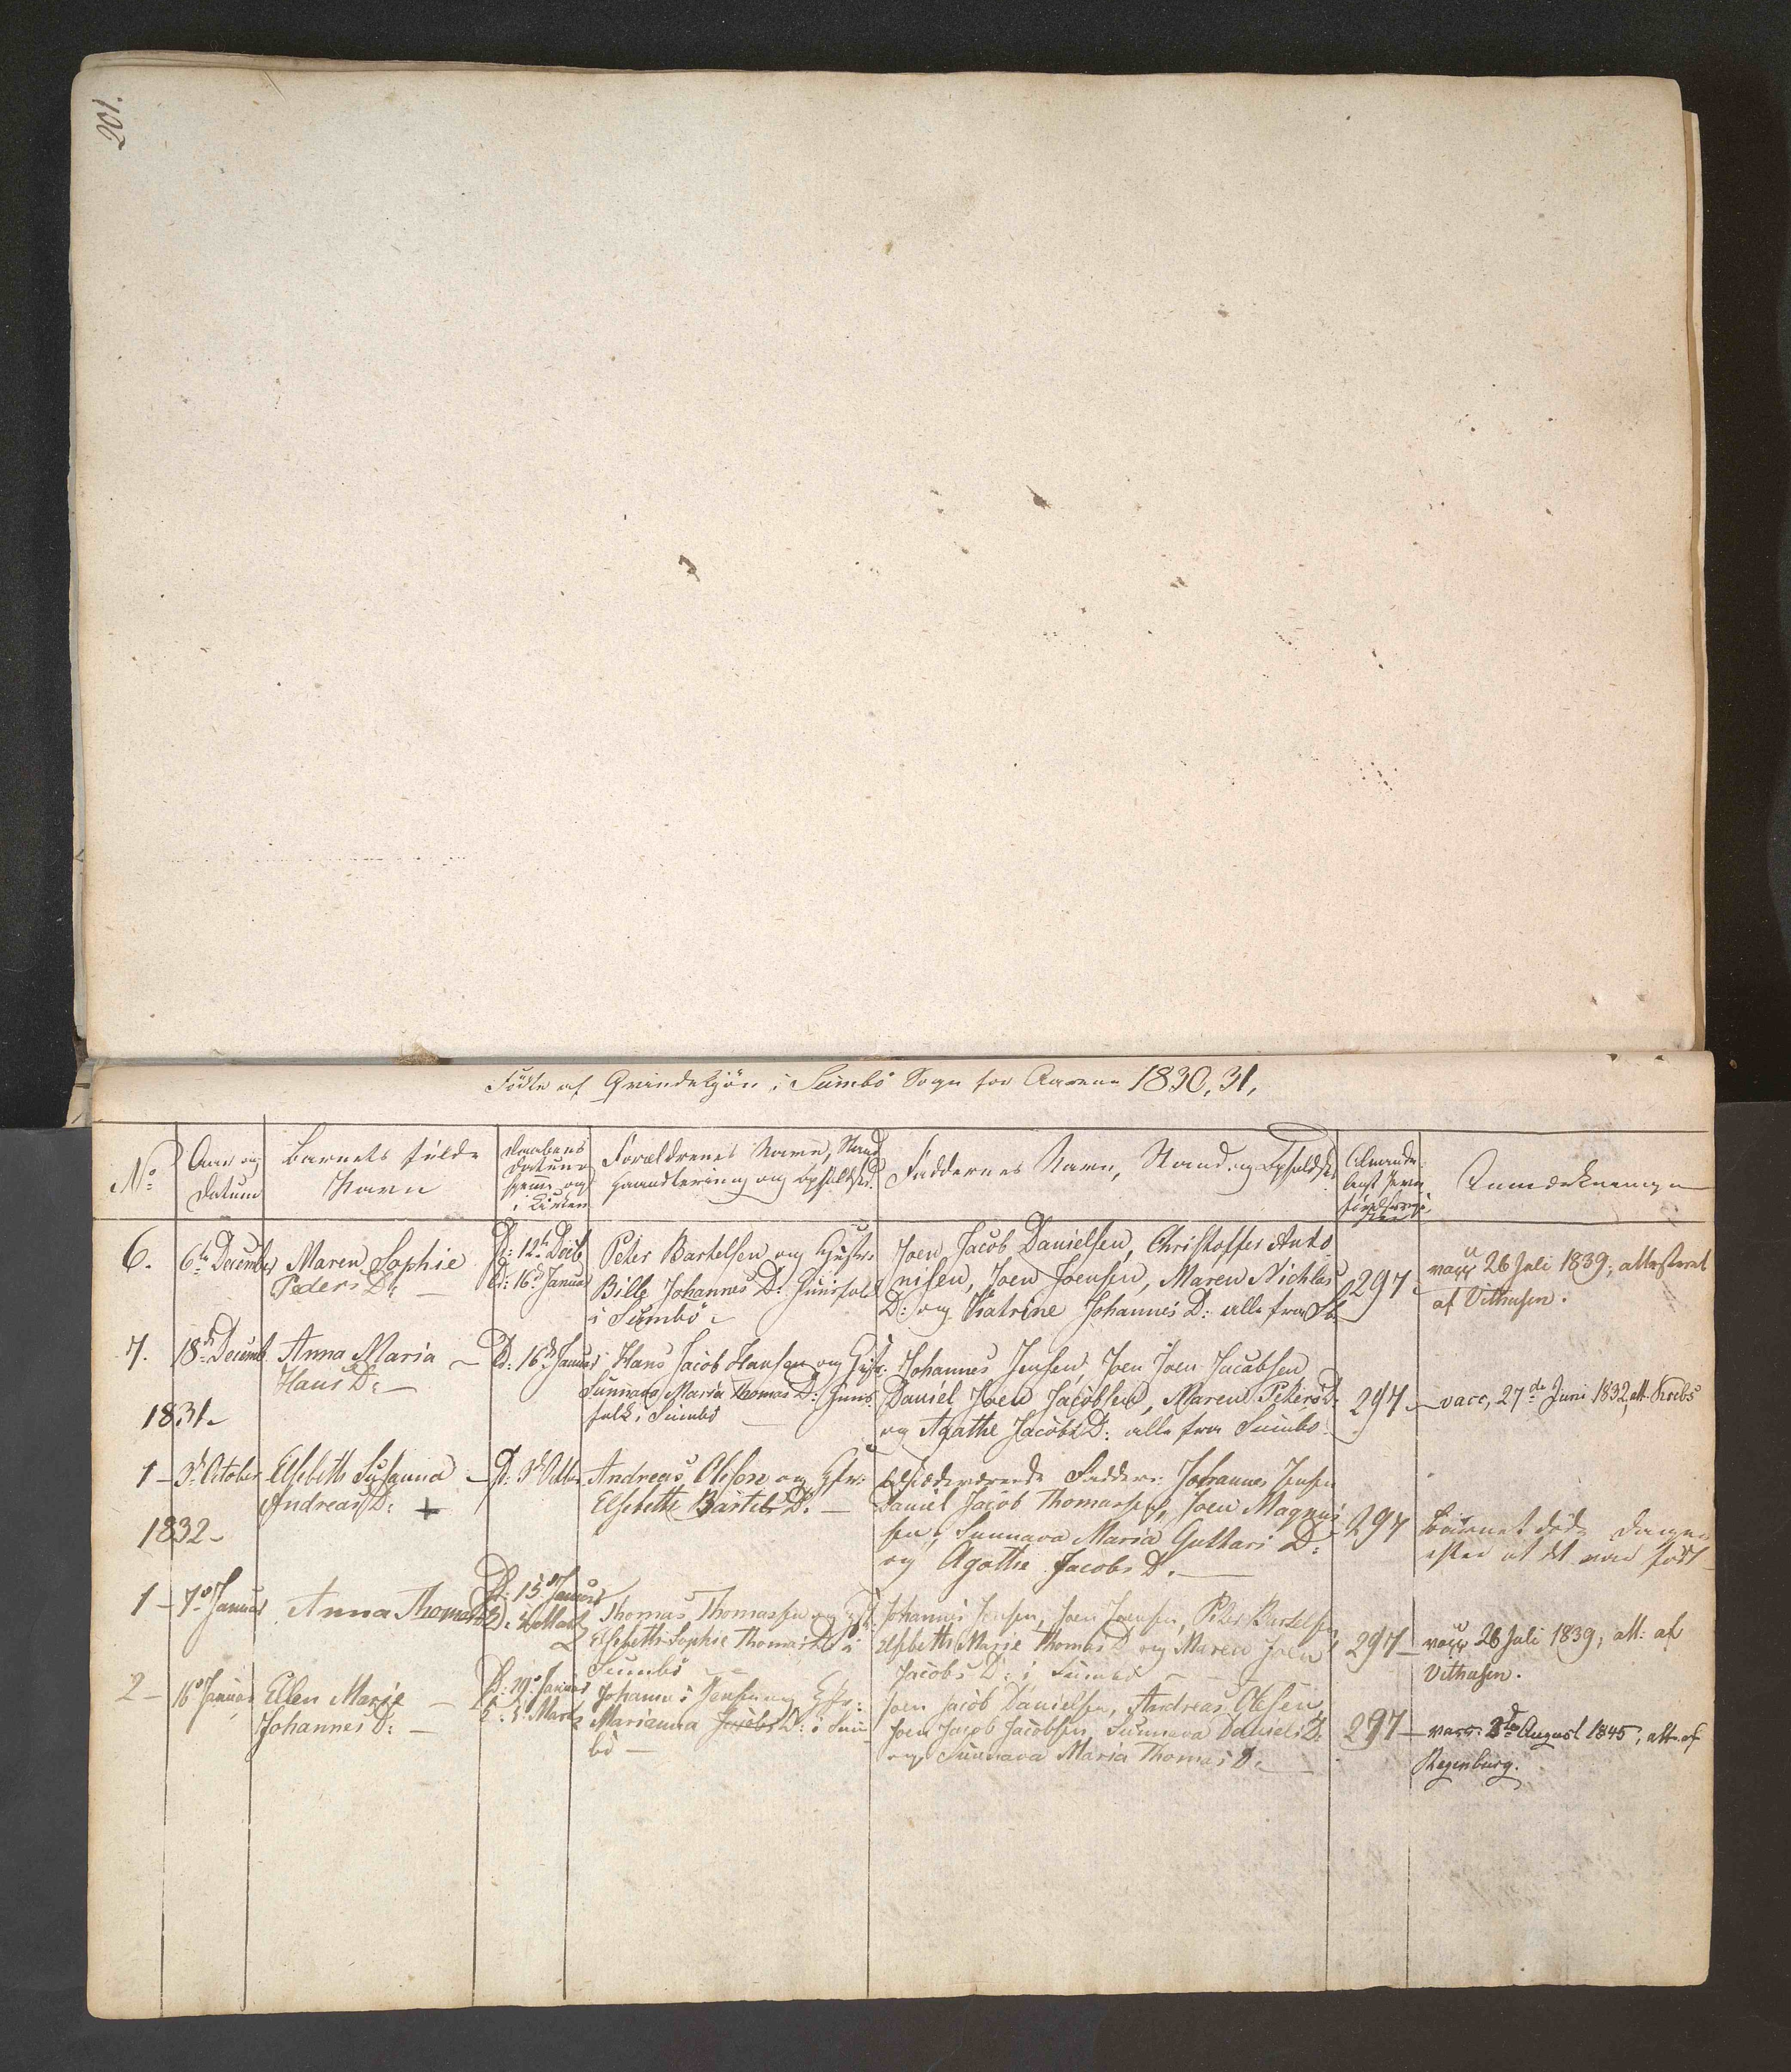 201.
Födte af Qvindekjön i Sumbö Sogn for Aarene 1830, 31,
No
Aar og
Datum
Barnets fulde
Navn
Daabens
Datum
hjemme og
i Kirken
Forældrenes Navn, Stand
Haandtering og Opholdsted.
Faddernes Navn, Stand og Opholdsted
Almindel.
Anmærkninger
6.
6te December
Maren Sophie
Peders D:
D: 12te Decb
C: 16de Januar
Peter Bartelsen og Hustr:
Bille Johannes D: Huusfolk
i Sumbö
Joen Jacob Danielsen, Christoffer Anto
nisen, Joen Joensen, Maren Nichlas
D: og Katrine Johannes D: alle fra Sb
297
vacc 26 Juli 1839; attesteret
af Vithusen.
7.
18de Decemb
Anna Maria
Hans D:
C: 16de Januar
Hans Jacob Hansen og Hustr:
Sunnava Maria Thomas D: Huus
folk i Sumbö
Johannes Jensen, Joen Joen Jacobsen
Daniel Joen Jacobsen, Maren Peters D:
og Agathe Jacobs D: alle fra Sumbö
297
vacc, 27de Juni 1832, att. Krebs
1831
1
3de October
Elsebeth Susanna
Andreas D: +
D: 3de Octbr
Andreas Olesen og Hstr:
Elsebethe Bartels D:
Fadder: Johannes Jensen
Daniel Jacob Thomassen, Joen Magnus
sen, Sunnava Maria Guttari D:
og Agathe Jacobs D.
297
Barnet döde Dagen
efter at det var födt
1832
1
7de Januar
Anna Thomas D:
D: 15de Januar
C: 4 Martz
Thomas Thomassen og Hst:
Elsebeth Sophie Thomas D: i
Sumbö
Johannes Jensen, Joen Joensen, Peter Bartelsen
Elsbeth Marie Thomas D og Maren Joen
Jacobs D: i Sumbö
297
vacc 26 Juli 1839, att: af
Vithusen.
2
16de Januar
Ellen Marie
Johannes D:
D: 29de Januar
C: 5. Martz
Johannes Jensen og Hstr:
Marianna Jacobs D: i Sum
bö
Joen Jacob Danielsen, Andreas Olesen,
Joen Jacob Jacobsen, Sunnava Daniels D:
og Sunnava Maria Thomas D:
297
vacc: 8de August 1845, att. af
Regenburg.